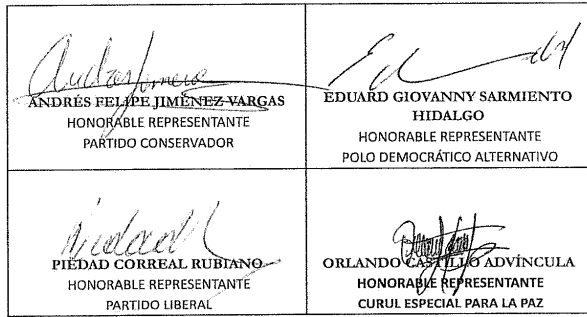 ANDRÉS FELIPE JIMÉNEZ VARGAS
HONORABLE REPRESENTANTE
PARTIDO CONSERVADOR
EDUARD GIOVANNY SARMIENTO
HIDALGO
HONORABLE REPRESENTANTE
POLO DEMOCRÁTICO ALTERNATIVO
PIEDAD CORREAL RUBIANO
HONORABLE REPRESENTANTE
PARTIDO LIBERAL
ORLANDO CASTILLO ADVÍNCULA
HONORABLE REPRESENTANTE
CURUL ESPECIAL PARA LA PAZ